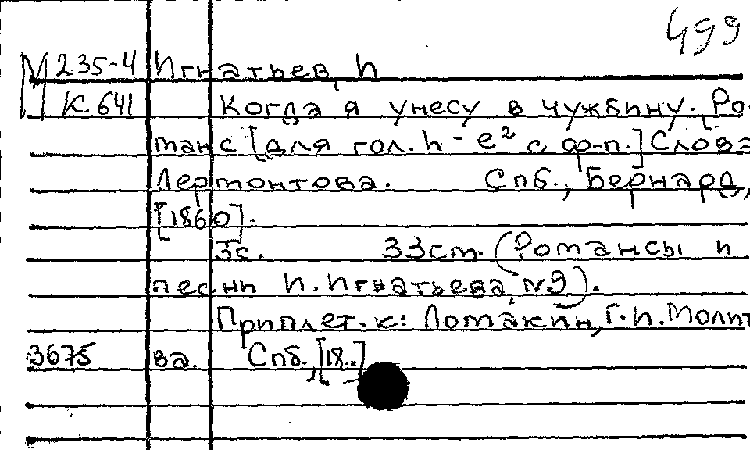 499
М 235-4 Игнатьев, И
К 641 Когда я унесу в чужбину. Ро-
манс [для гол. h - e² с ф-п.] Слова
Лермонтова. Спб., Бернард,
[1860].
3с. 33см. (Романсы и
песни И. Игнатьева, №9).
Приплет. к: Ломакин, Г. И. Молит
3675 ва. Спб., [18..]